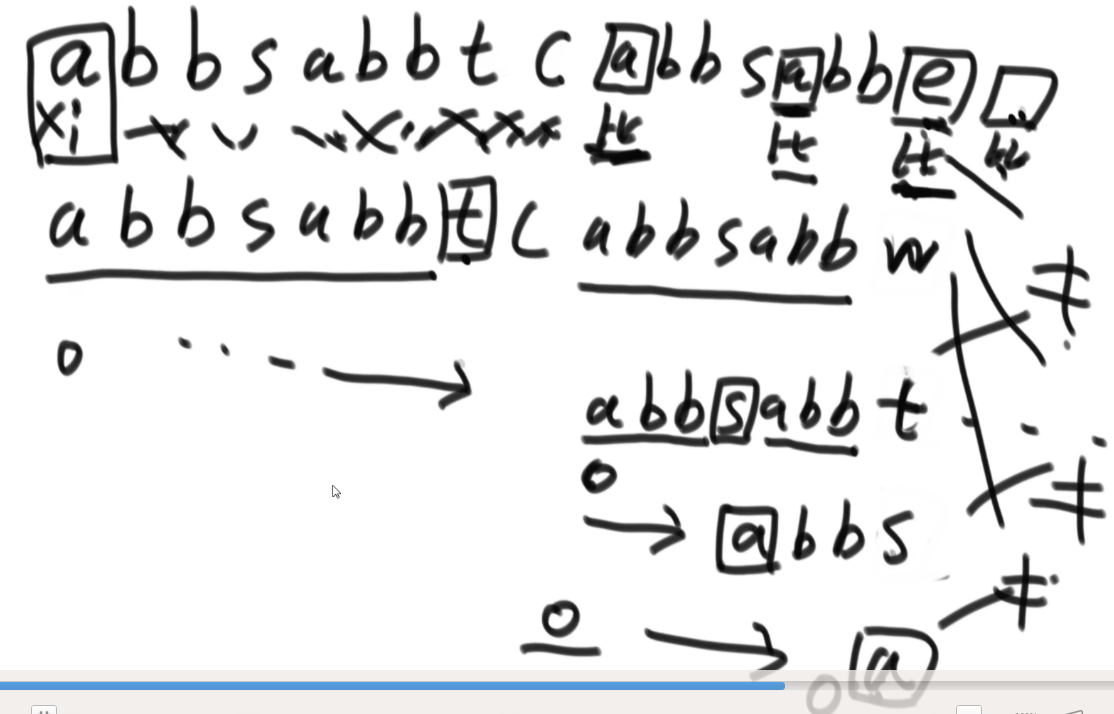 a b b s a b b t c a b b s a b b e
xi
a b b s a b b t c a b b s a b b w
≠
0
a b b s a b b t
0
≠
a b b s
≠
0
a
0